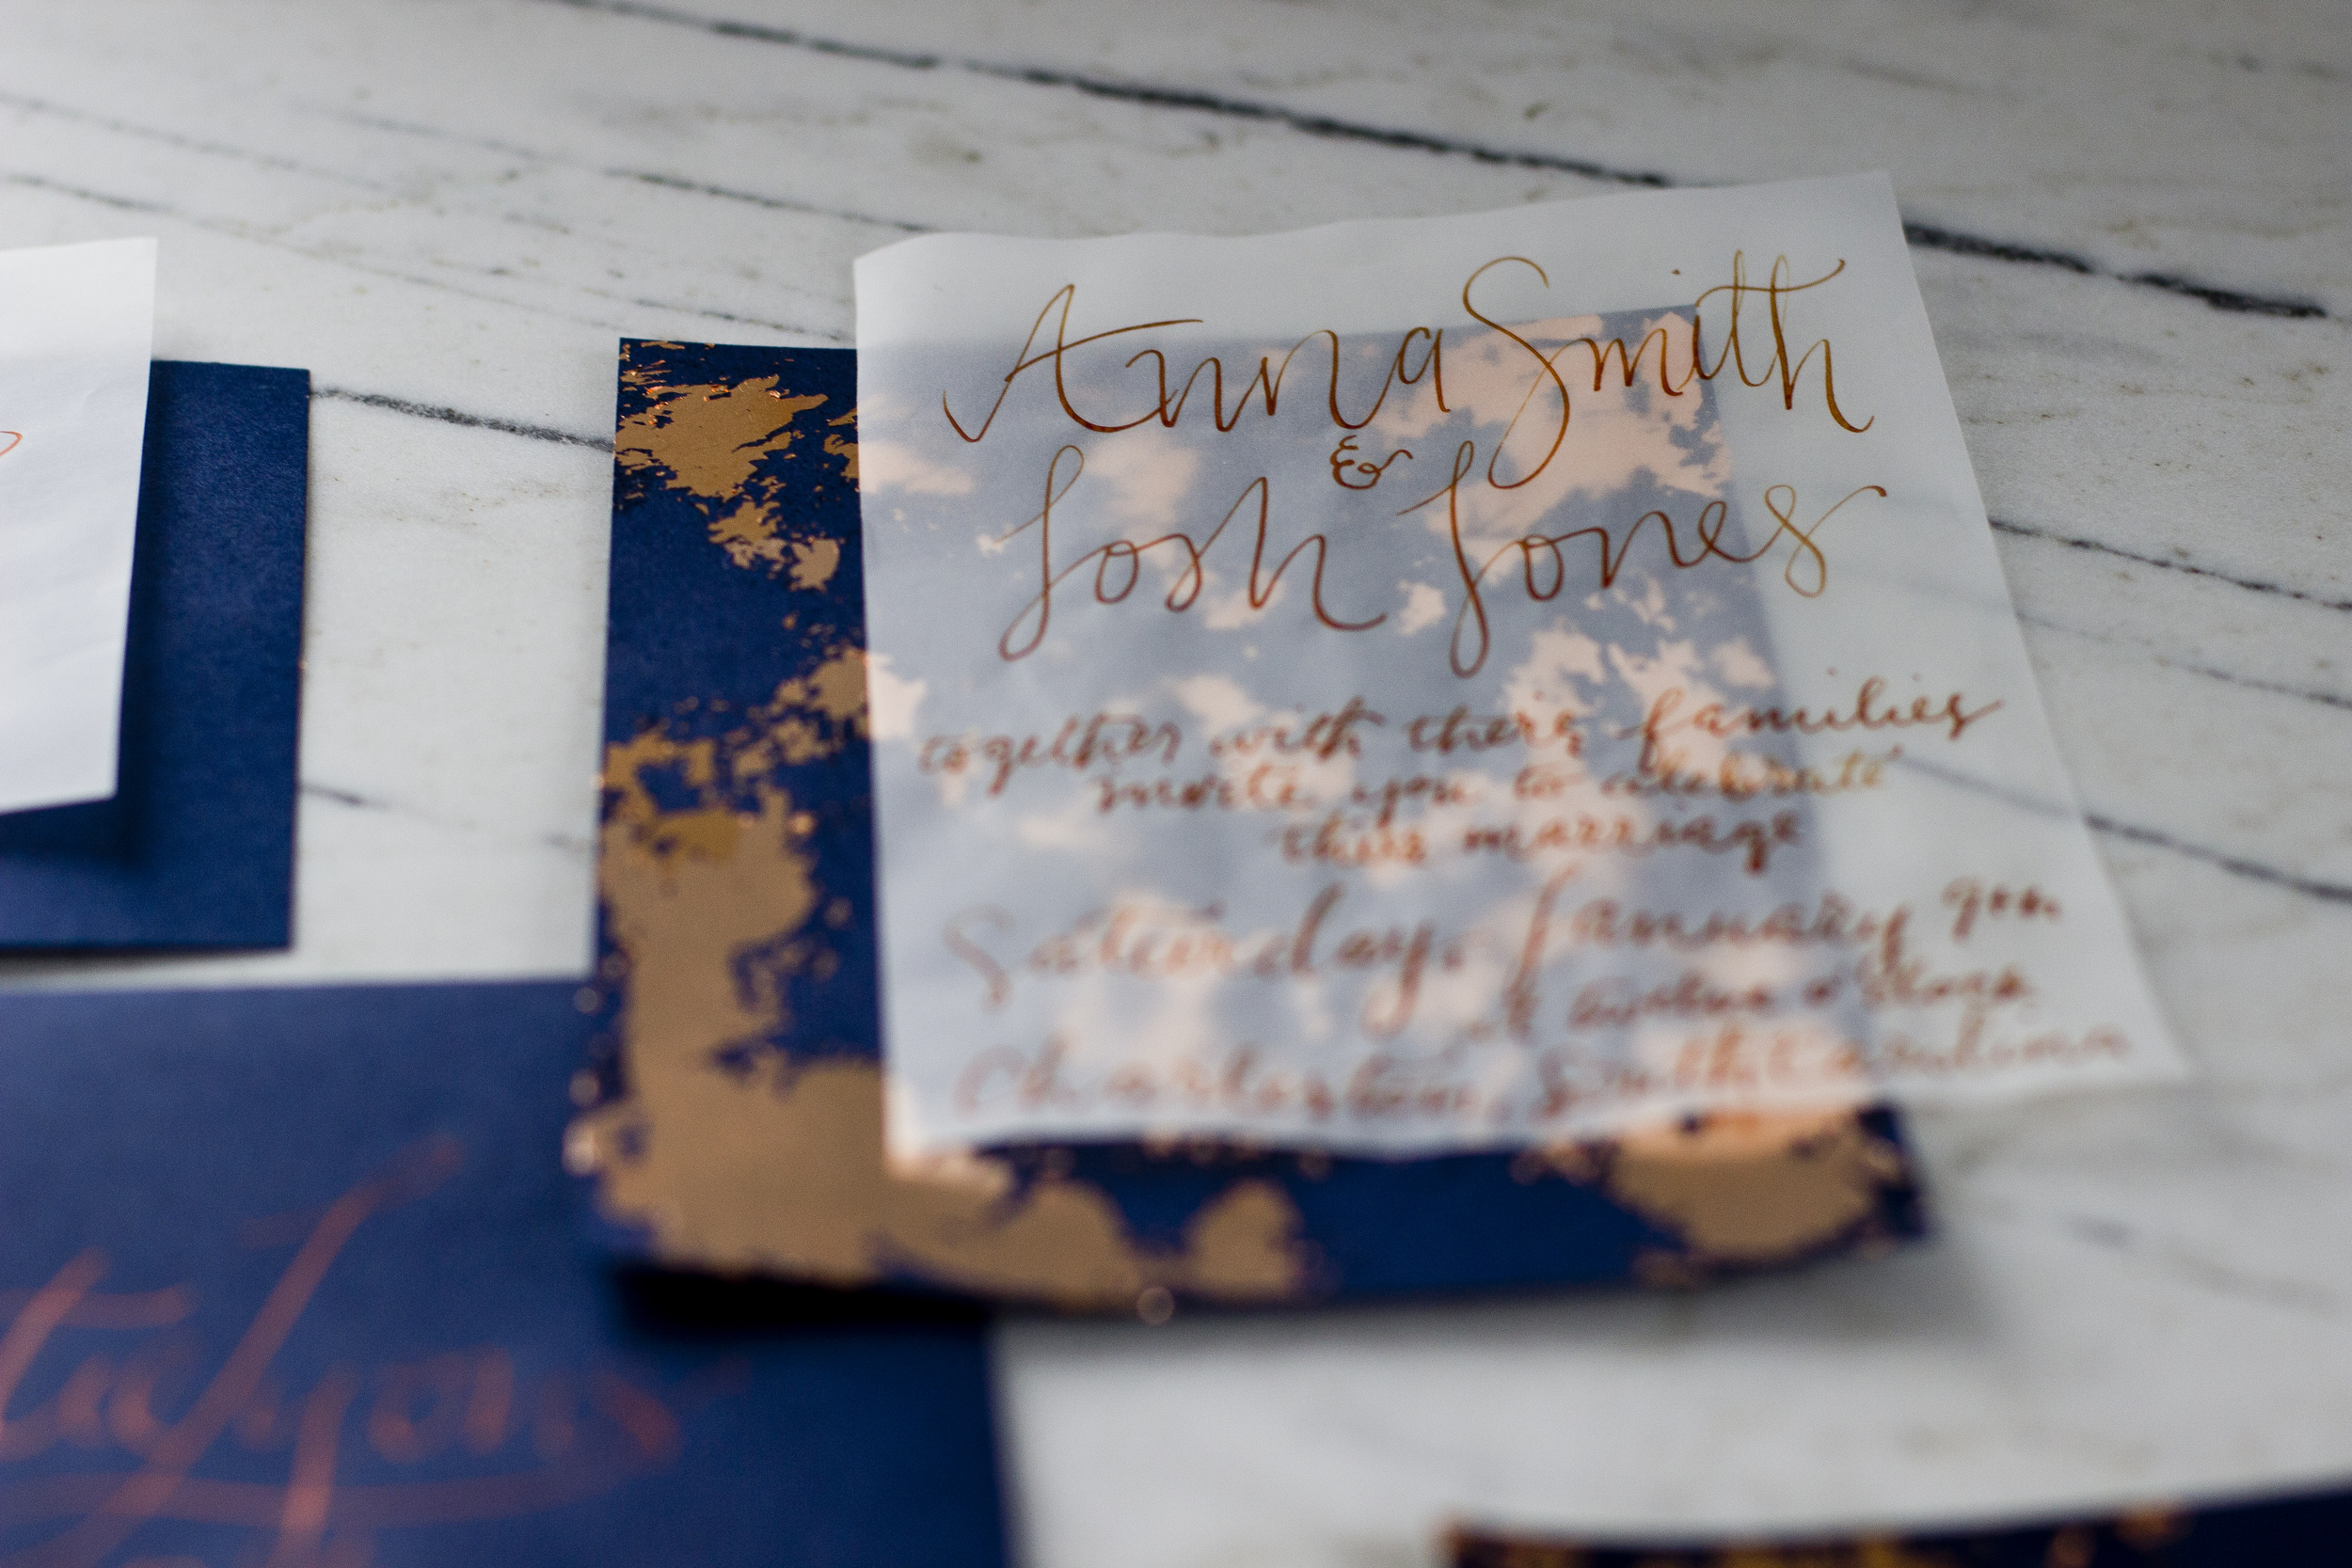 Anna Smith
&
Josh Jones
together with their families
invite you to celebrate
their marriage
Saturday, January
at o'clock
Charleston, South Carolina